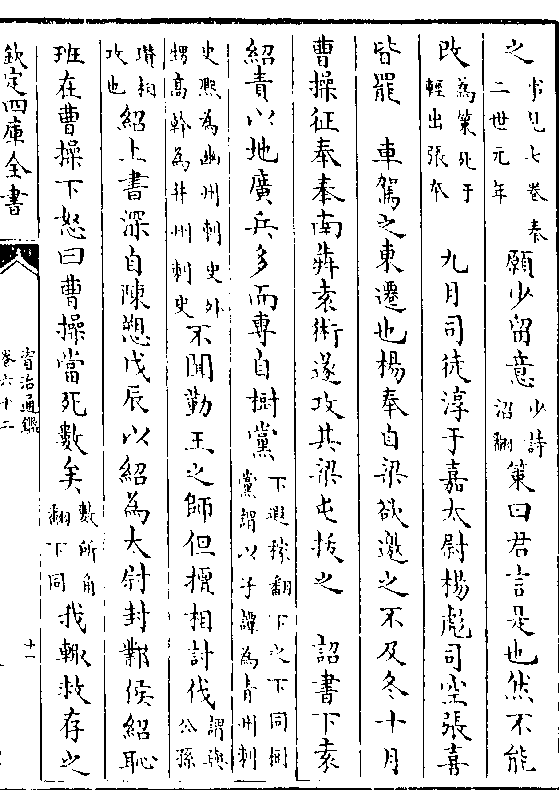 之事見七卷秦二世元年願少留意少詩沼翻策曰君言是也然不能
改為策死于輕出張本 九月司徒淳于嘉太尉楊彪司空張喜
皆罷 車駕之東遷也楊奉自梁欲邀之不及冬十月
曹操征奉奉南奔袁術遂攻其梁屯拔之 詔書下袁
紹責以地廣兵多而專自樹黨下遐稼翻下之下同樹黨謂以子譚為青州刺
史熙為幽州刺史外甥高幹為并州刺史不聞勤王之師但擅相討伐謂與公孫
瓚相攻也紹上書深自陳愬戊辰以紹為大尉封鄴侯紹恥
班在曹操下怒曰曹操當死數矣數所角翻下同我輒救存之
欽定四庫全書
資治通鑑
卷六十二
十一